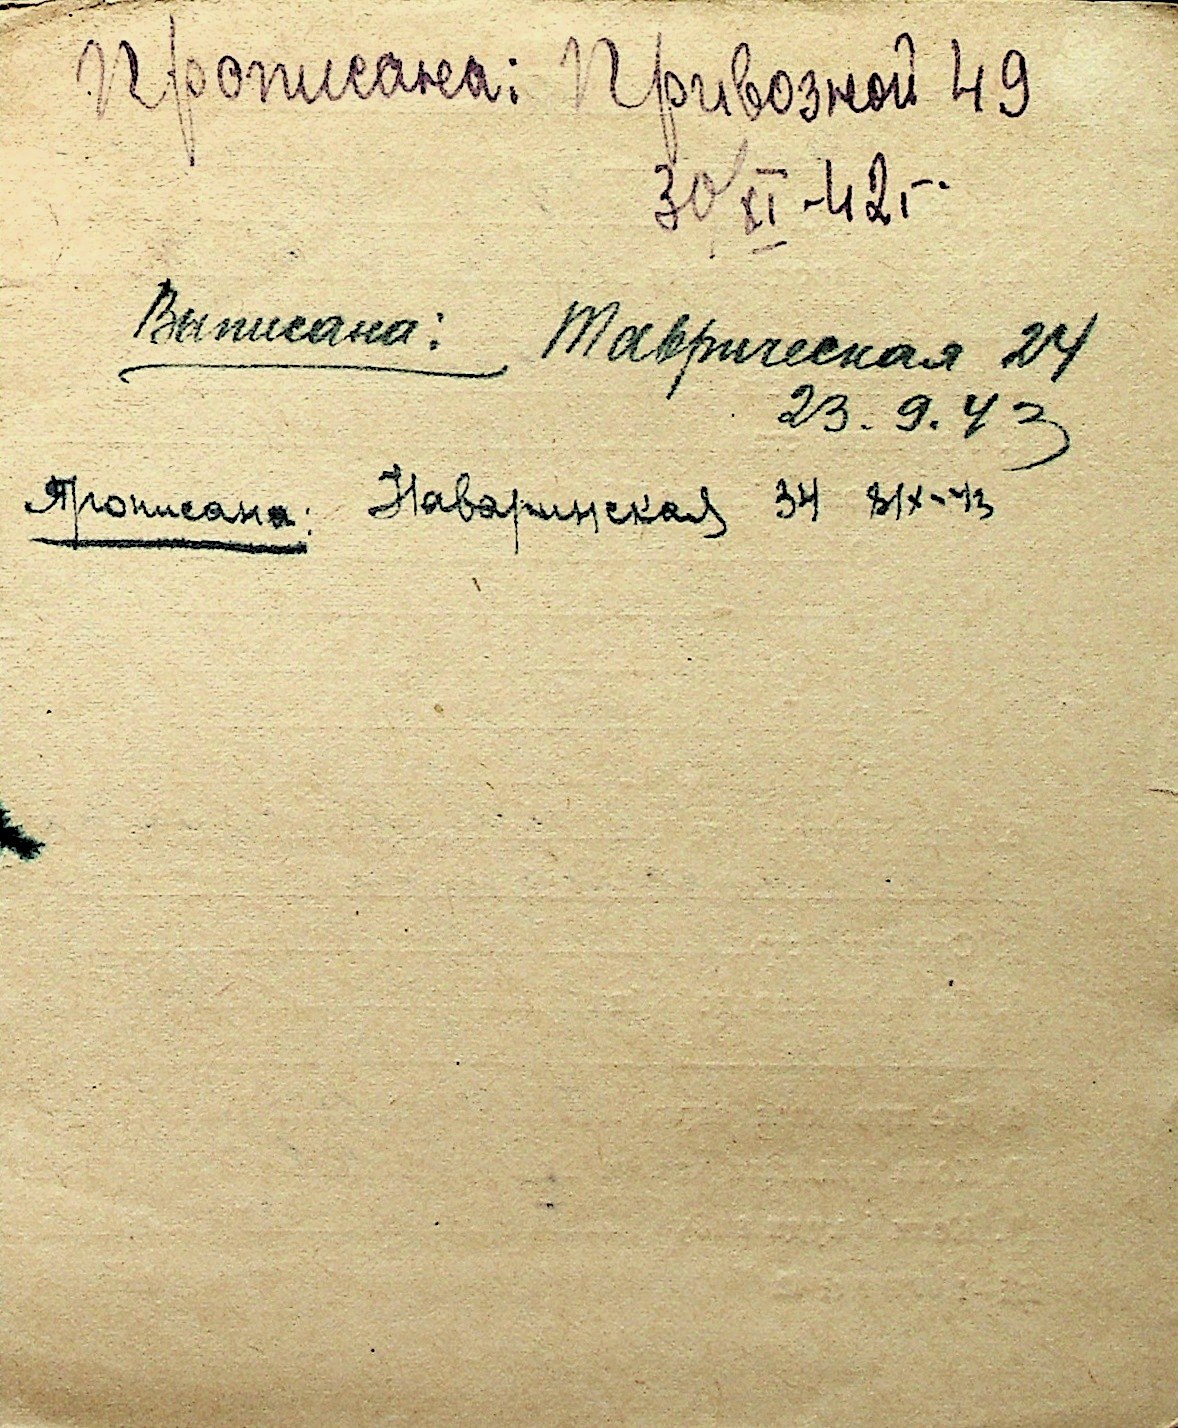 Прописана: Привозной 49
30/XI-42г.
Выписана: Таврическая 24
23.9.43
Прописана: Наваринская 34 8/IX-43